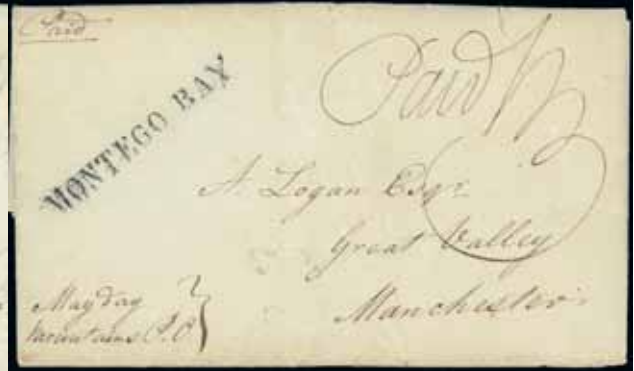 Paid
MONTEGO BAY
Paid
A. Logan Esqr
Great Valley
Manchester
May day
Mountains P.O